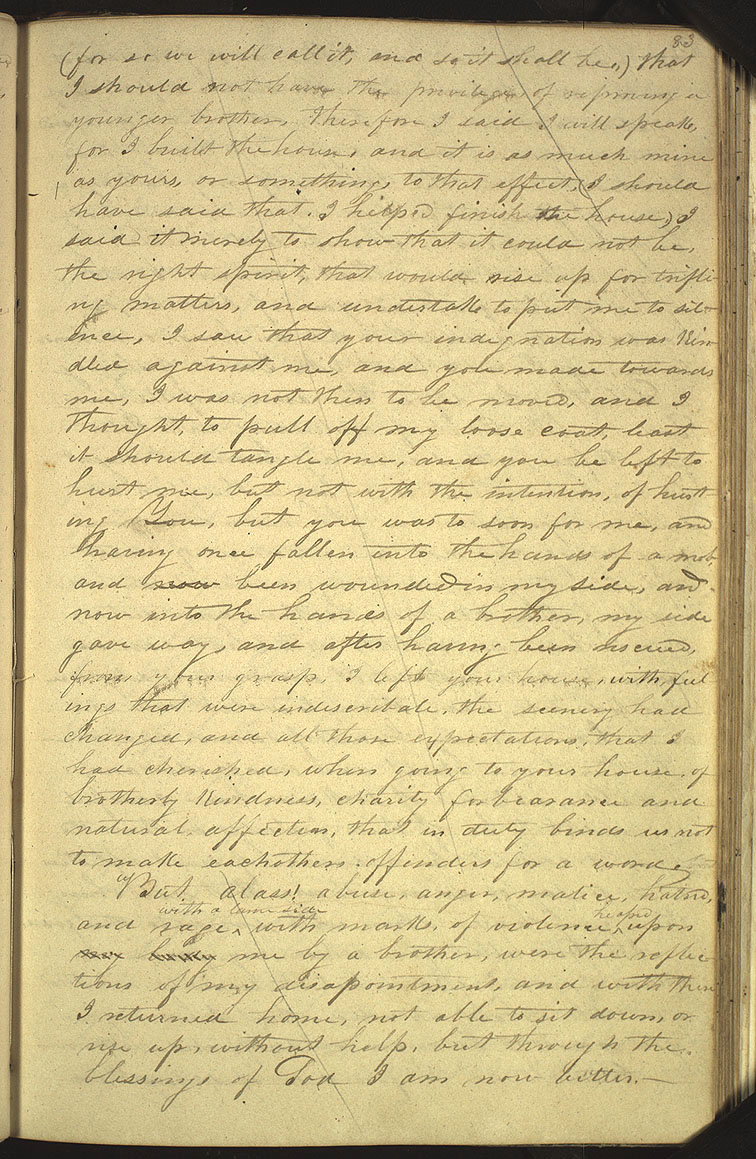 83
(for so we will call it, and so it shall be,) that
I should not have the privilege of reproving a
younger brother, therefore I said I will speak,
for I built the house, and it is as much mine
as yours, or something, to that effect, (I should
have said that, I helped finish the house,) I
said it merely to show that it could not be,
the right spirit, that would rise up for trifli-
ng matters, and undertake to put me to sil-
ence, I saw that your indignation was kin-
dled against me, and you made towards
me, I was not then to be moved, and I
thought, to pull off my loose coat, least
it should tangle me, and you be left to
hurt me, but not with the intention, of hurt-
ing You, but you was to soon for me, and
having once fallen into the hands of a mob,
and now been wounded in my side, and
now into the hands of a brother, my side
gave way, and after having been rescued,
from your grasp, I left your house, with feel
ings that were indescribale, the scenery had
changed, and all those expectations, that I
had cherished, when going to your house, of
brotherly kindness, charity forbearance and
natural affection, that in duty binds us not
to make eachothers offenders for a word.
"But alass! abuse, anger, malice, hatred,
with a lame side heaped
and rage, with marks, of violence, upon
my body me by a brother, were the reflec
tions of my disapointment, and with these
I returned home, not able to sit down, or
rise up, without help, but through the
blessings of God I am now better.—